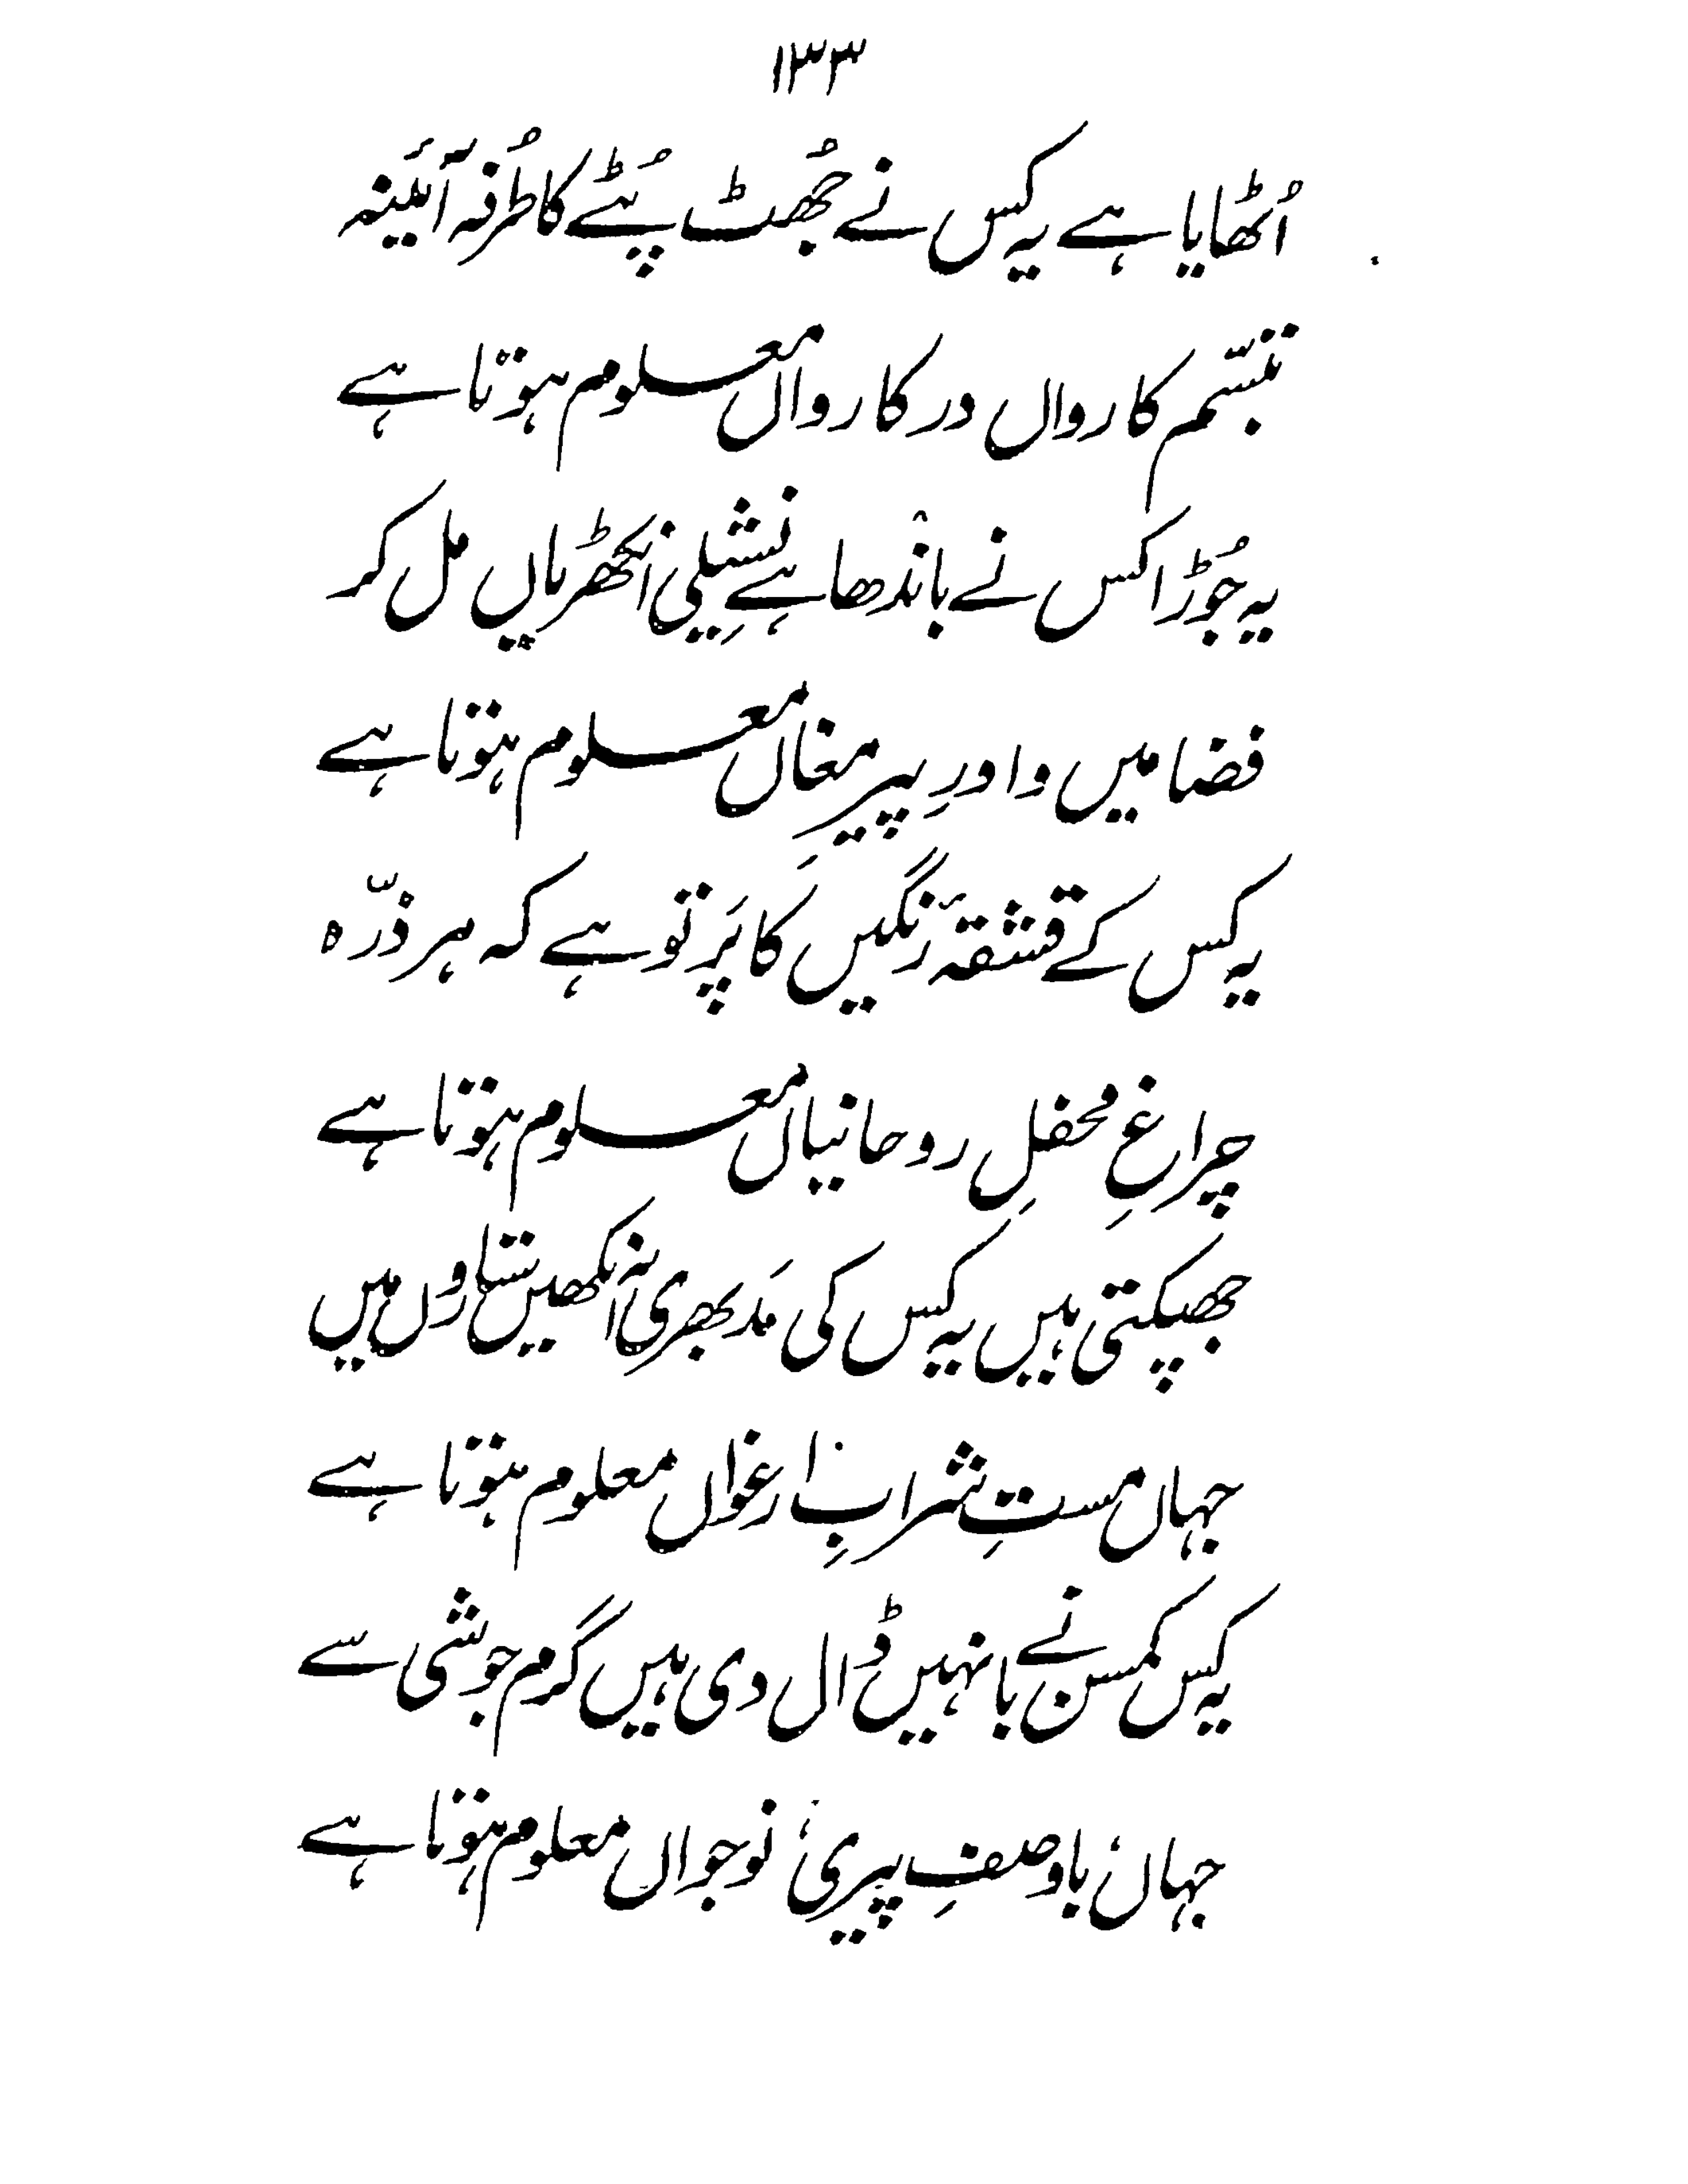 ۱۳۳
اُٹھایا ہے یہ کس نے جُھٹ پُٹے کا طُرفہ آئینہ
تبسّم کارواں در کارواں معلوم ہوتا ہے
یہ جُوڑا کس نے باندھا ہے نشیلی انکھڑیاں مل کر
فضا میں وا درِ پیرِ مغاں معلوم ہوتا ہے
یہ کس کے قشقۂ رنگیں کا پَرتو ہے کہ ہر ذرّہ
چراغِ محفلِ روحانیاں معلوم ہوتا ہے
جھپکتی ہیں یہ کس کی مَدبھری آنکھیں ستاروں میں
جہاں مستِ شرابِ ارغواں معلوم ہوتا ہے
یہ کس کمسن نے بانہیں ڈال دی ہیں گرم جوشی سے
جہاں، باوصفِ پیری، نوجواں معلوم ہوتا ہے